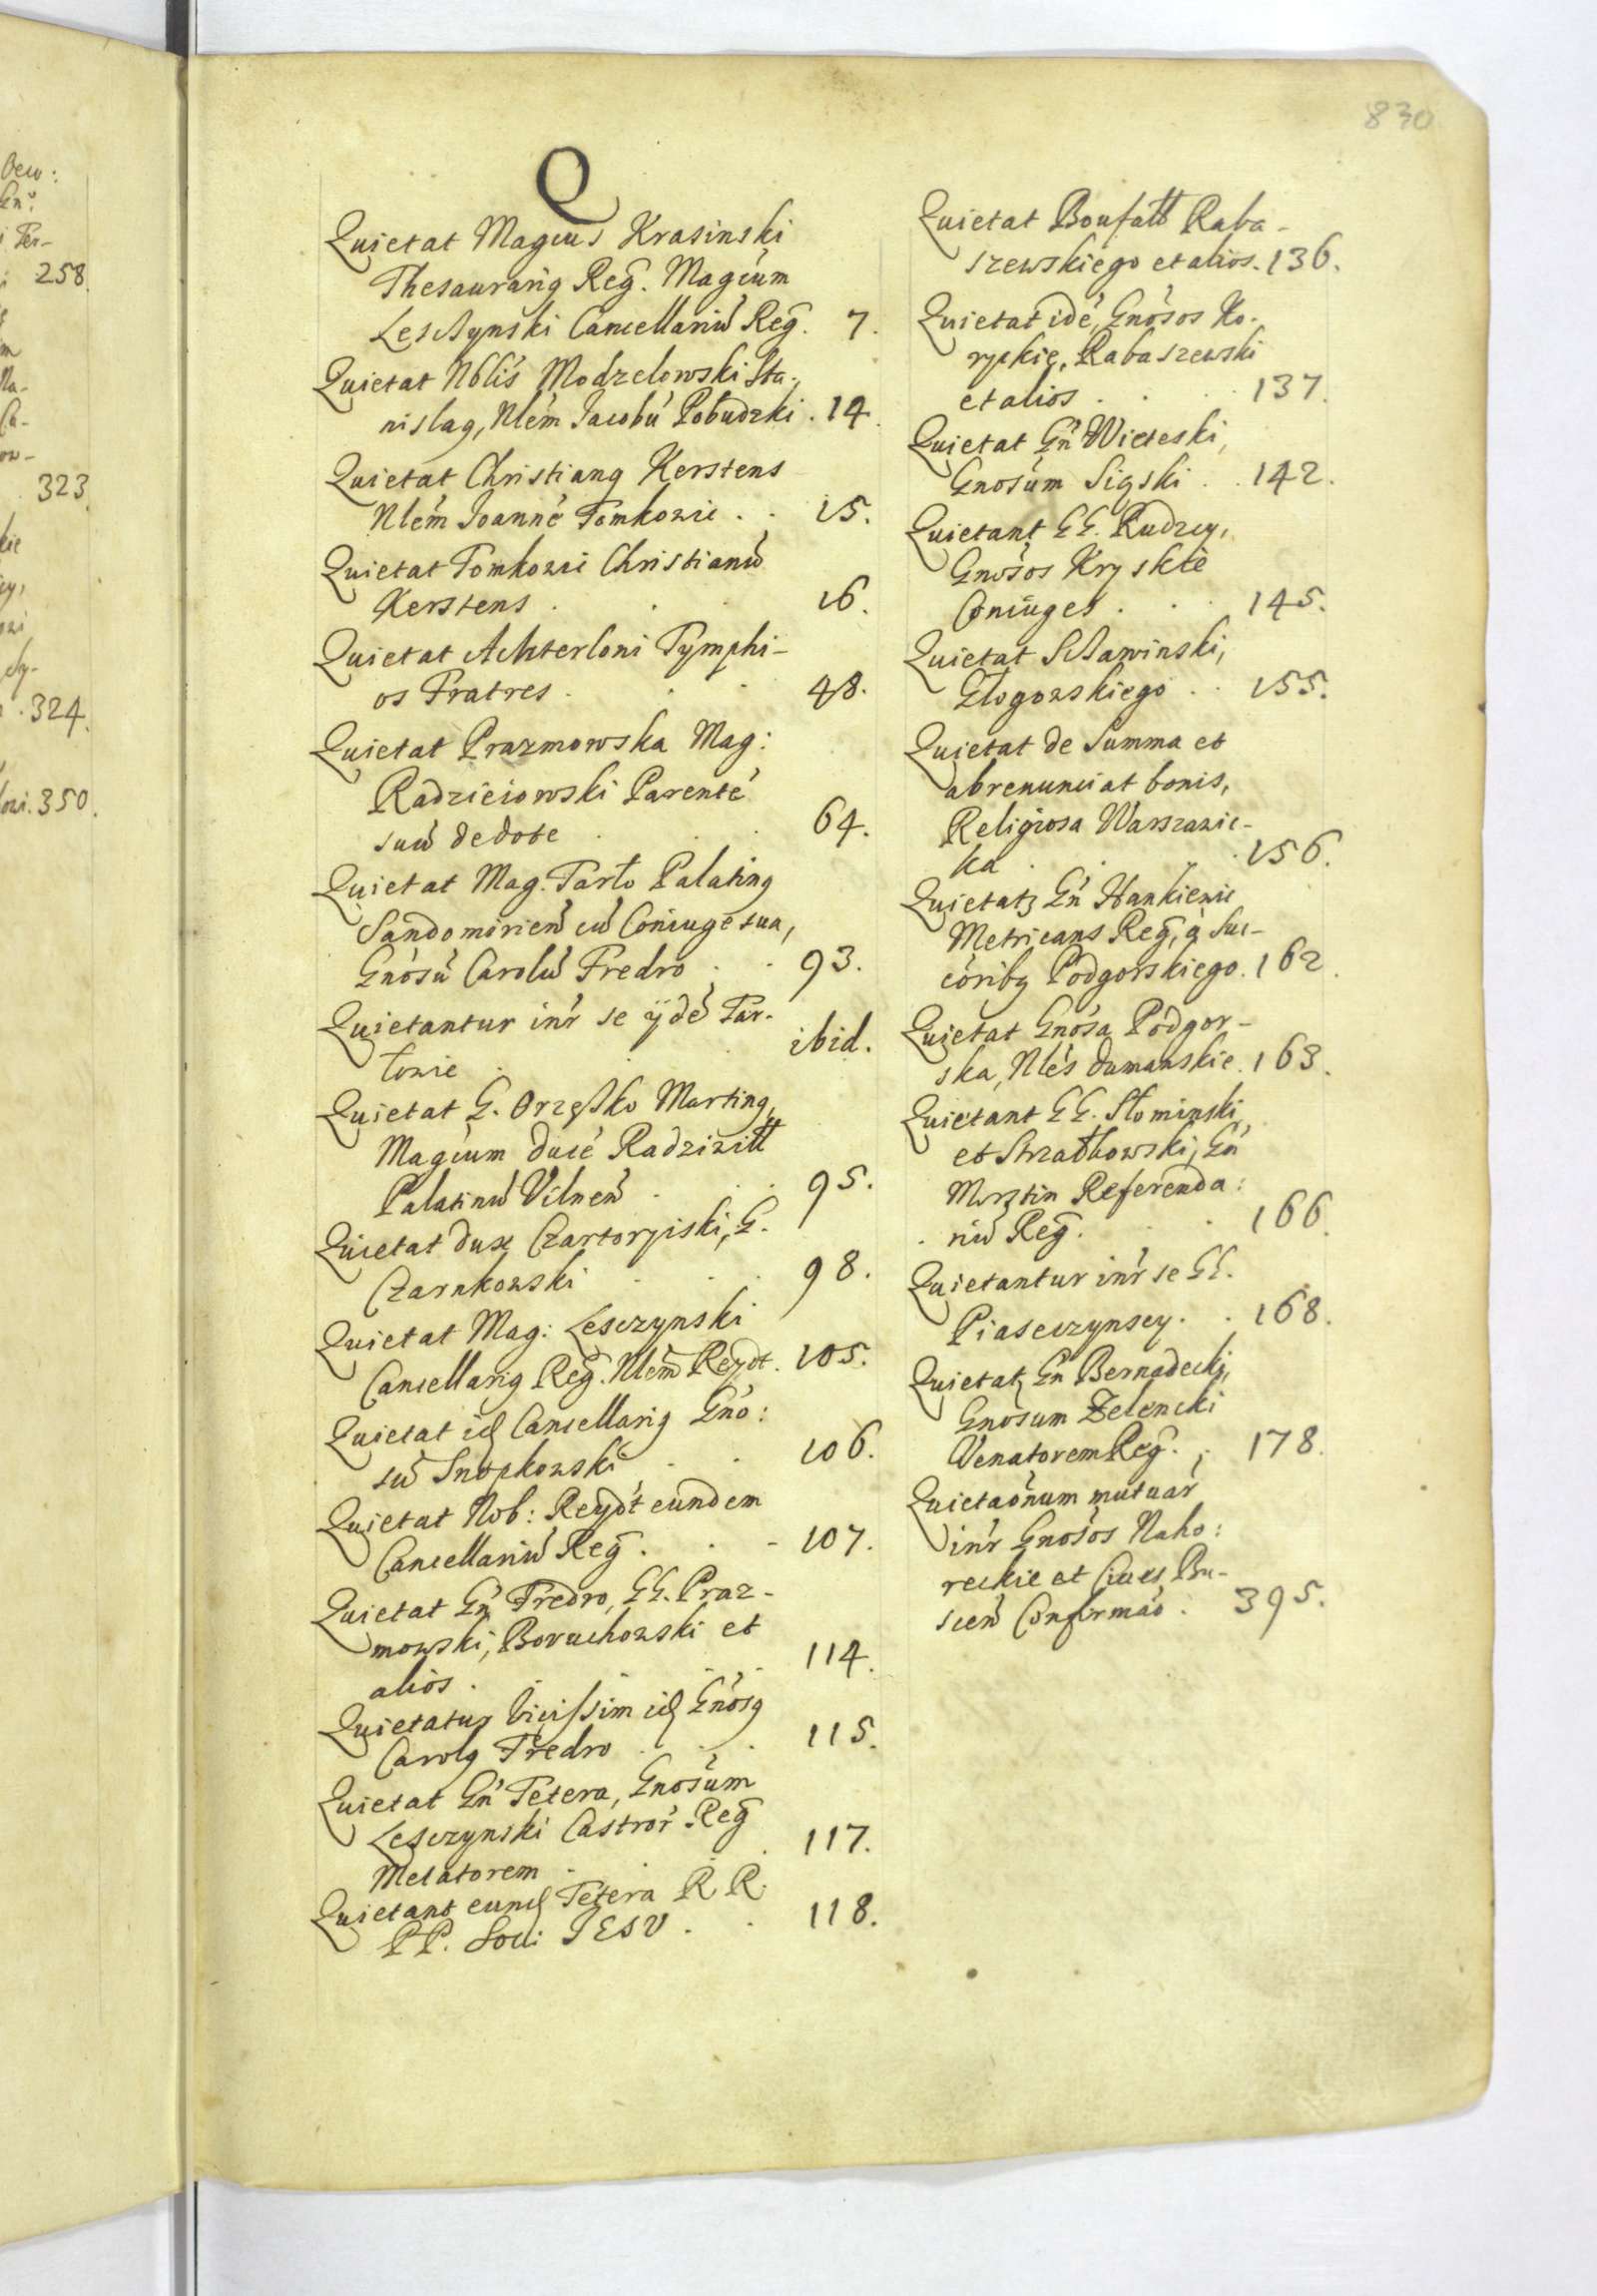 830
Q
Quietat Magcus Krasinski
Thesaurarig Reg. Magcum
Lesczynski Cancellariu Reg. 7.
Quietat Nblis Modzelowski Sta-
nislag, Nlem Jacobu Pobudzki. 14.
Quietat Christiang Kerstens
Nlem Joanne Tomkowic . . 15.
Quietat Tomkowic Christianu
Kerstens . . . 16.
Quietat Achterloni Tymphi-
os Fratres . . . 48.
Quietat Prazmowska Mag:
Radzieiowski Parente
suu de dote . . . 64.
Quietat Mag. Tarło Palating
Sandomirien cu Coniuge sua,
Gnosu Carolu Fredro . . 93.
Quietantur inr se ÿde Tar-
łowie . . . ibid.
Quietat G. Orzeszko Marting,
Magcum duce Radziwiłł
Palatinu Vilnen . . . 95.
Quietat dux Czartoryiski, G.
Czarnkowski . . . 98.
Quietat Mag: Lesczynski
Cancellarig Reg. Nlem Reydt. 105.
Quietat id Cancellarig Gno:
su Snopkowski . . 106.
Quietat Nob: Reydt eundem
Cancellariu Reg. . . - 107.
Quietat Gn Fredro, GG. Praz-
mowski, Boruchowski et
alios . . . 114.
Quietatur vicissim id Gnosg
Carolg Fredro . . . 115.
Quietat Gn Tetera, Gnosum
Lesczynski Castror Reg
Metatorem . . . 117.
Quietant eund Tetera R R.
PP. Soci JESV . . 118.
Quietat Boufałł Raba-
szewskiego et alios. 136.
Quietat ide, Gnosos Ko-
rypkie, Rabaszewski
et alios . . . 137.
Quietat Gn Wieteski,
Gnosum Sigski . . 142.
Quietant GG. Rudzcy,
Gnosos Kryskie
Coniuges . . . 145.
Quietat Sczawinski,
Głogowskiego . . 155.
Quietat de Summa et
abrenunciat bonis,
Religiosa Warszawic-
ka . . . 156.
Quietat Gn Hankiewic
Metricans Reg, a Suc-
coribg Podgorskiego. 162.
Quietat Gnosa Podgor-
ska, Nles dumanskie. 163.
Quietant GG. Słominski
et Strzałkowski, Gn
Morstin Referenda:
riu Reg. . . 166.
Quietantur inr se GG.
Piaseczynscy . . 168.
Quietat Gn Bernadecki,
Gnosum Zelencki
Venatorem Reg. . 178.
Quietaonum mutuar
inr Gnosos Naho:
reckie et Ciues Bu-
scen Confirmao . 395.
258.
323.
324.
350.